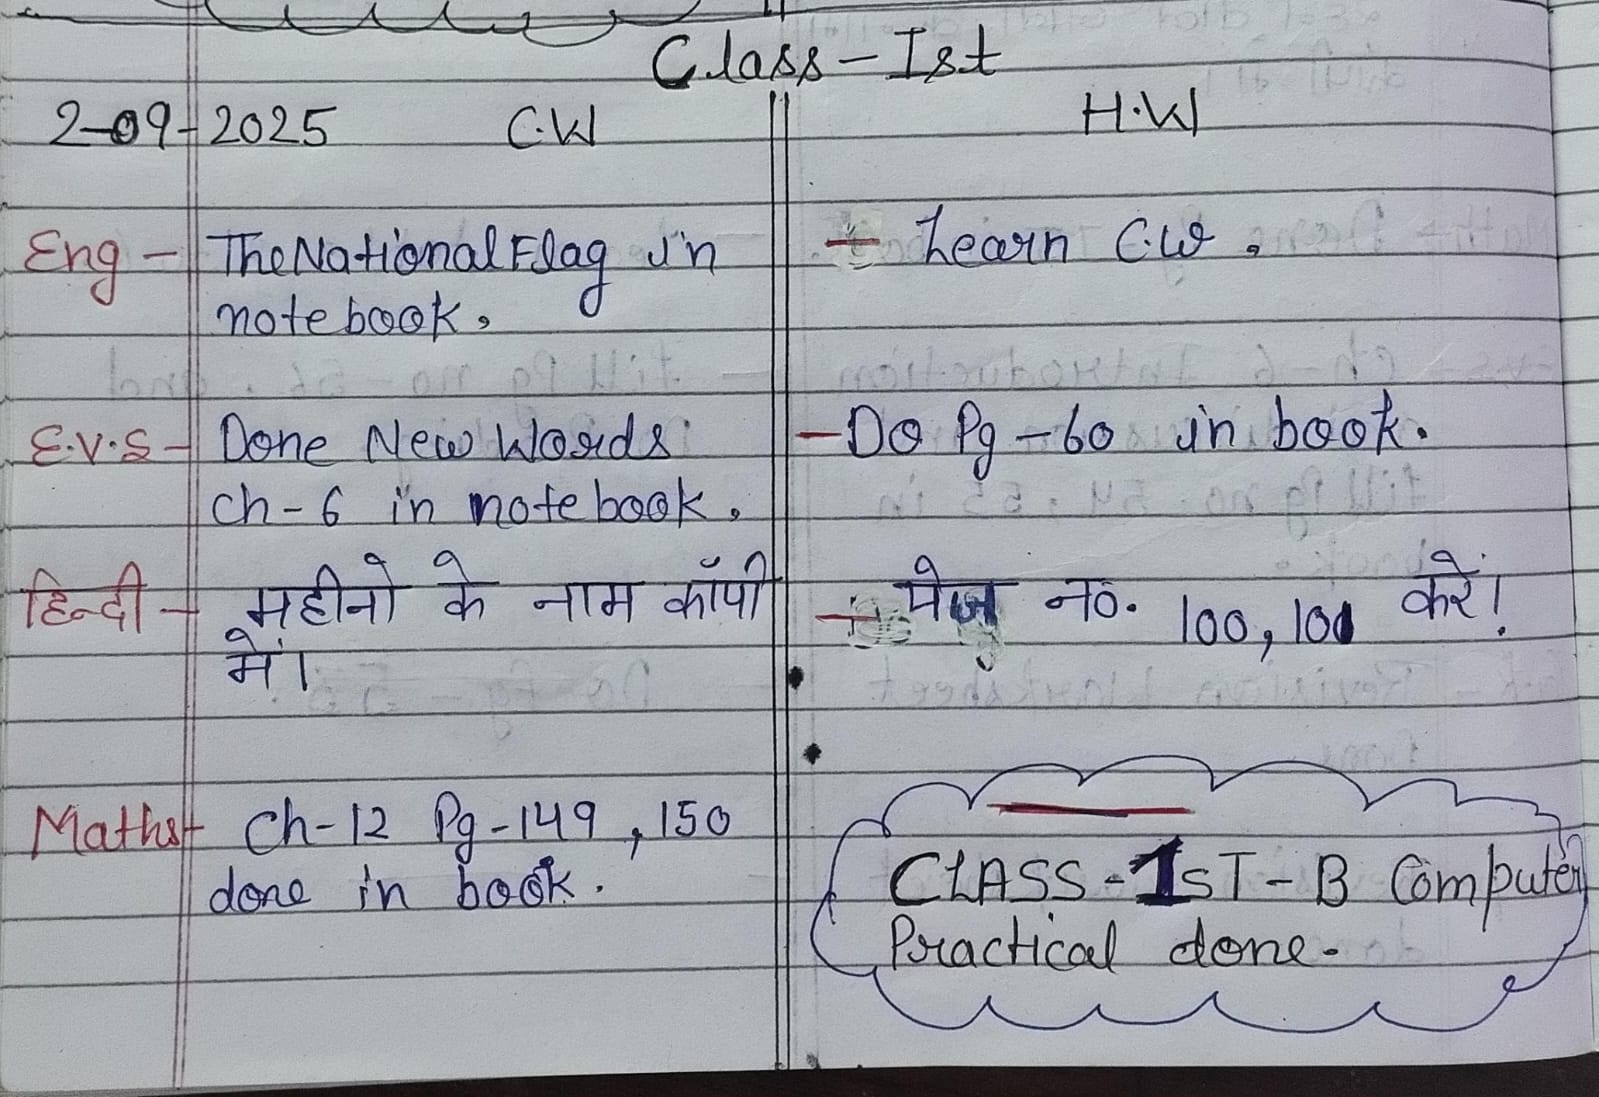 Class-Ist
2-09-2025 C.W H.W
Eng - The National Flag in - Learn C.W.
notebook.
E.V.S - Done New Words - Do Pg-60 in book.
ch-6 in notebook.
हिन्दी - महीनो के नाम कॉपी - पेज नं. 100, 101 करें।
में।
Maths - Ch-12 Pg-149, 150
done in book.
CLASS-1ST-B Computer
Practical done.